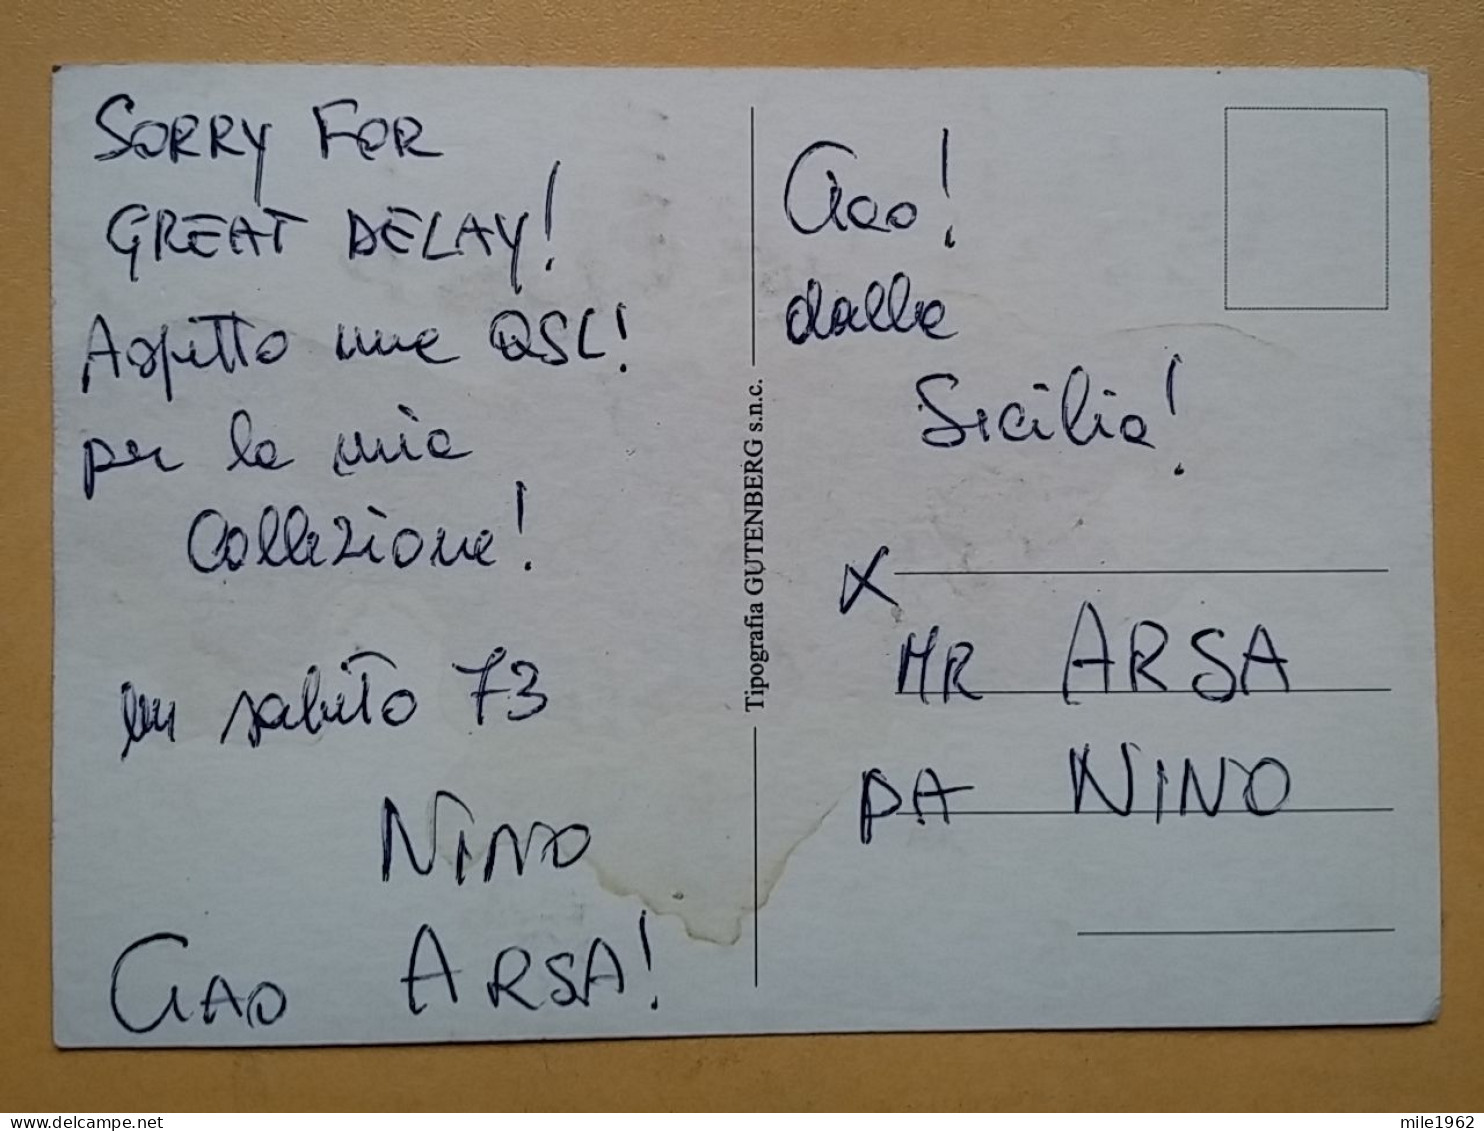 SORRY FOR
GREAT DELAY!
Aspetto una QSL!
per la mia
Collezione!
un saluto 73
NINO
CIAO ARSA!
Tipografia GUTENBERG s.n.c.
Ciao!
dalla
Sicilia!
X
MR ARSA
DA NINO
delcampe.net
mile1962